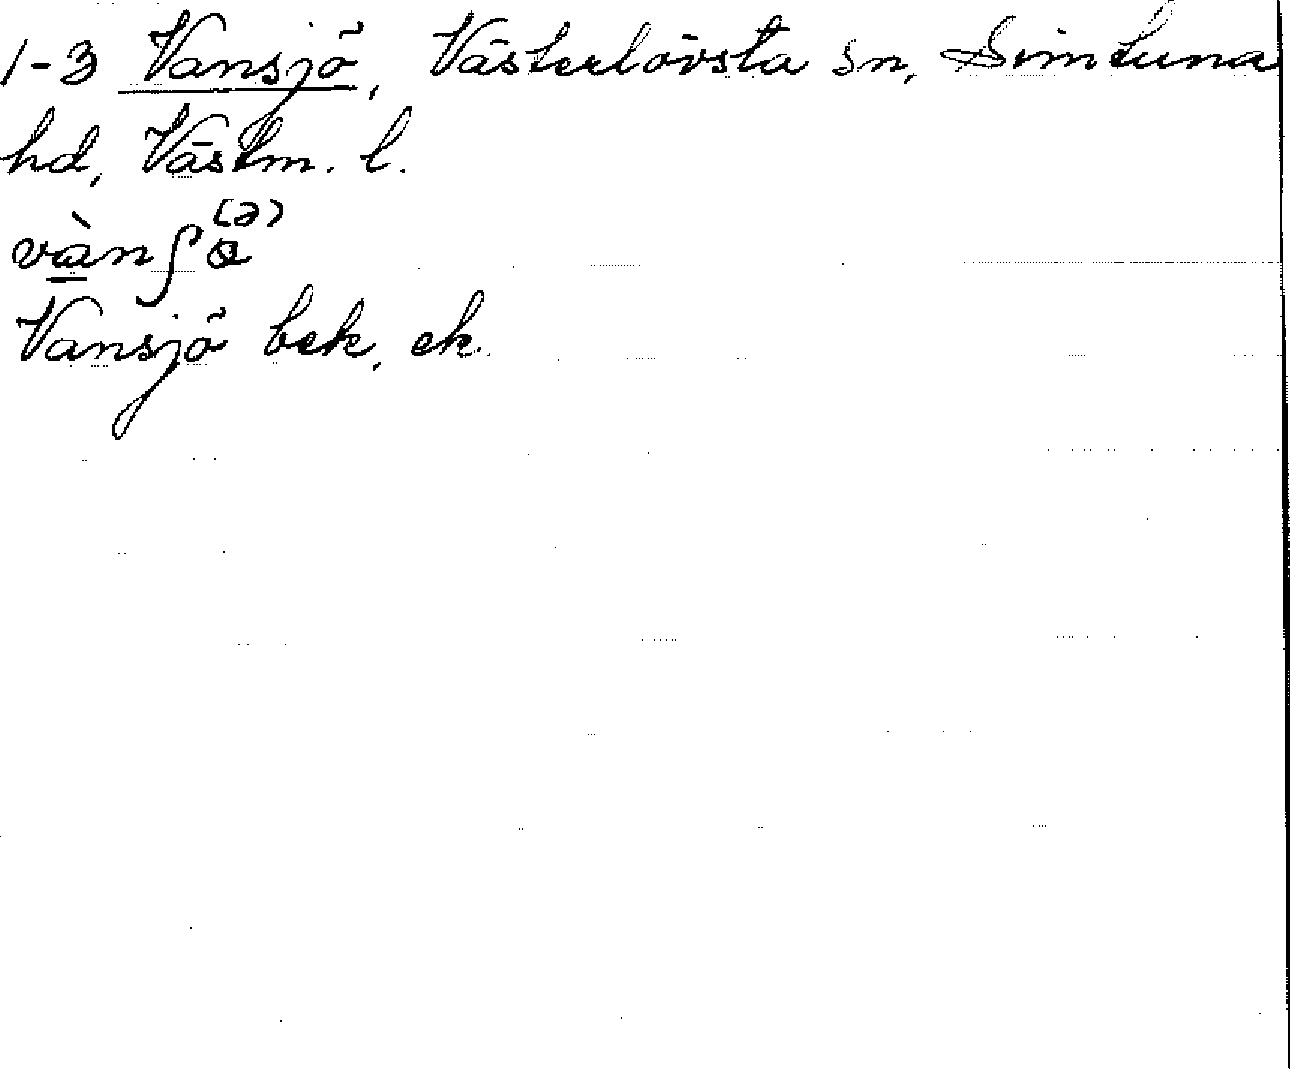 1-3 Vansjö, Västerlövsta sn, Simtuna
hd, Västm. l.
vànʃ
(ə)
Vansjö bek, ek.